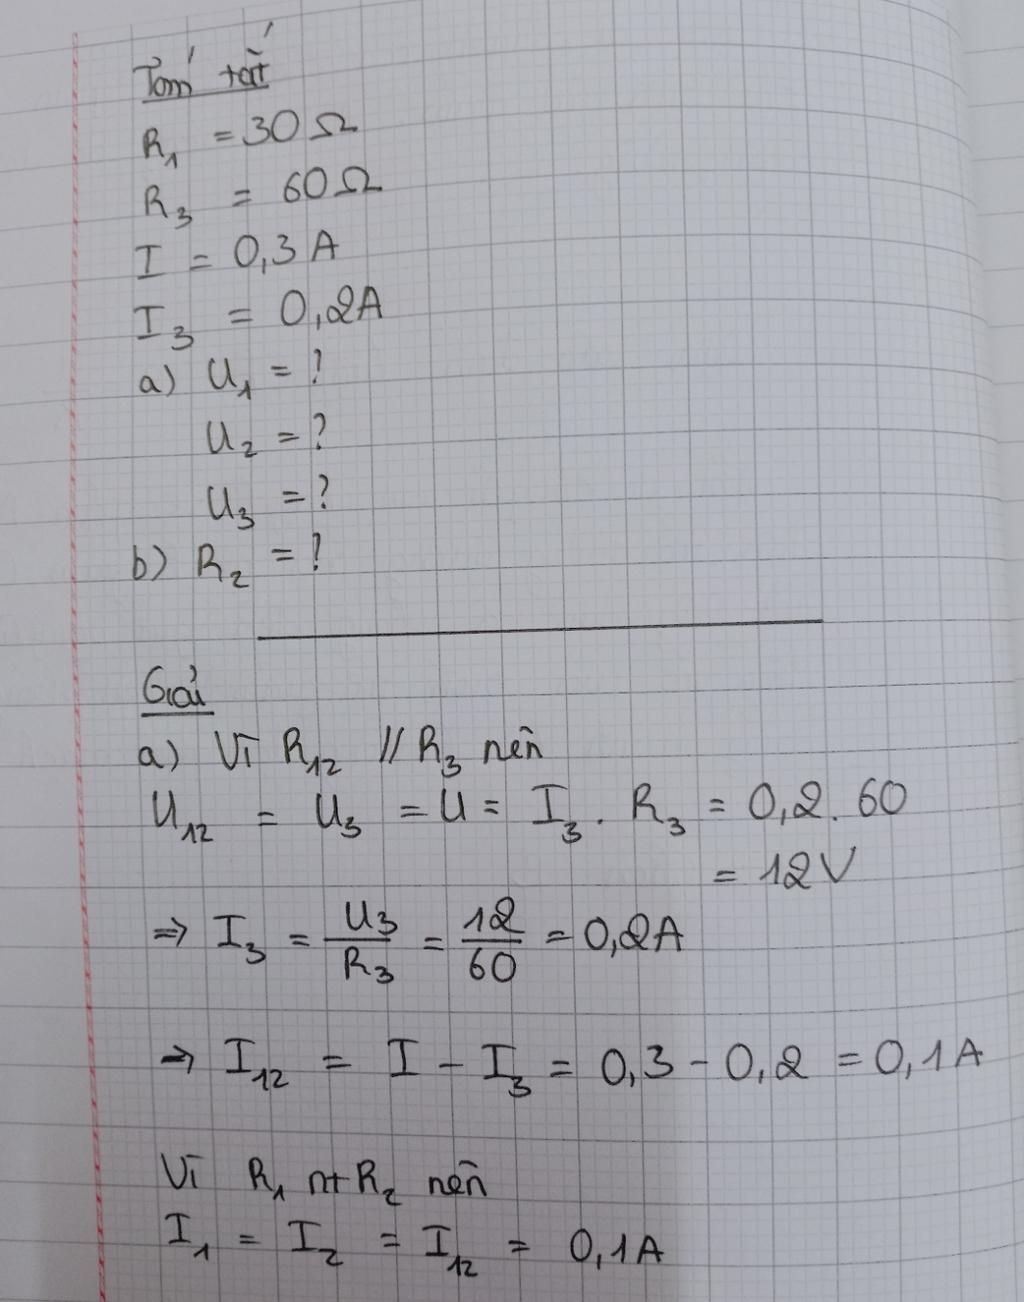 Tóm tắt
R₁ = 30 Ω
R₃ = 60 Ω
I = 0,3 A
I₃ = 0,2A
a) U₁ = ?
U₂ = ?
U₃ = ?
b) R₂ = ?
Giải
a) Vì R₁₂ // R₃ nên
U₁₂ = U₃ = U = I₃ . R₃ = 0,2 . 60
= 12 V
⇒ I₃ = U₃/R₃ = 12/60 = 0,2A
⇒ I₁₂ = I - I₃ = 0,3 - 0,2 = 0,1 A
Vì R₁ nt R₂ nên
I₁ = I₂ = I₁₂ = 0,1A